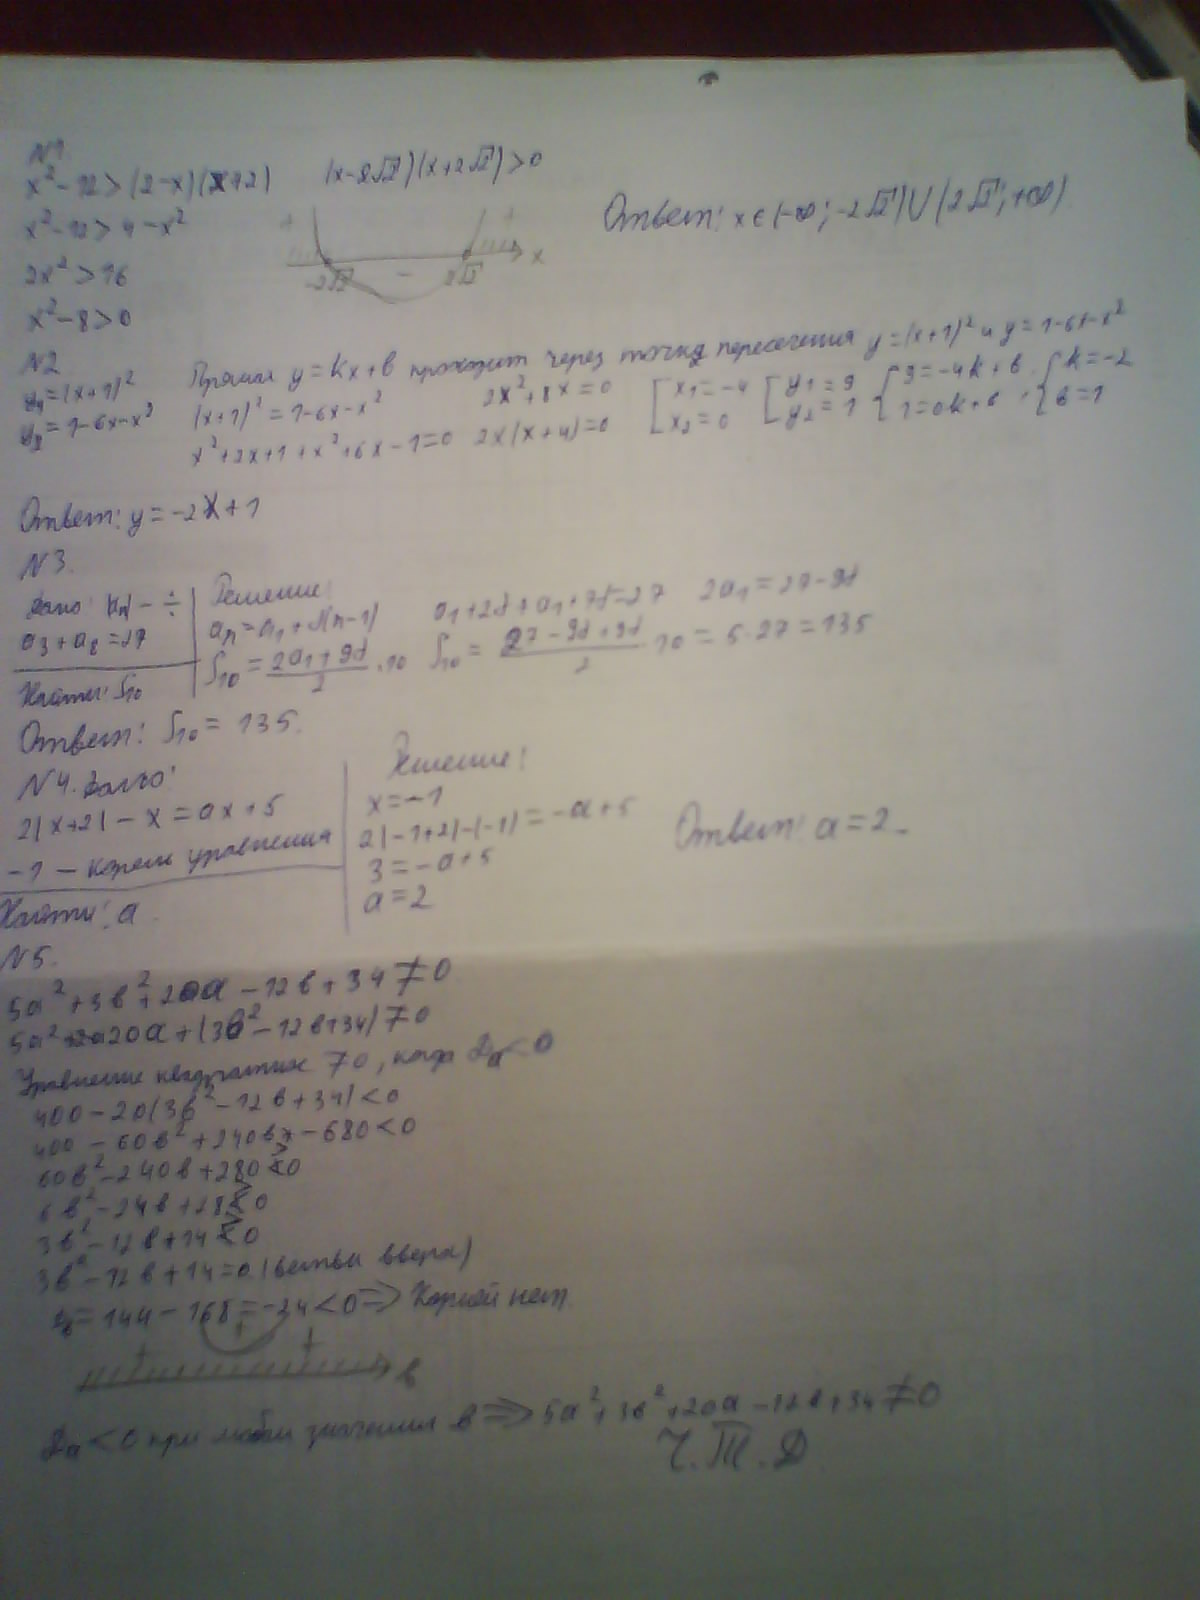 N1
x²-12>(2-x)(x+2)
x²-12>4-x²
2x²>16
x²-8>0
(x-2√2)(x+2√2)>0
+ - +
-2√2 2√2 x
Ответ: x∈(-∞; -2√2)∪(2√2; +∞)
N2
y₁=(x+1)²
y₂=1-6x-x²
Прямая y=kx+b проходит через точки пересечения y=(x+1)² и y=1-6x-x²
(x+1)²=1-6x-x²
x²+2x+1+x²+6x-1=0
2x²+8x=0
2x(x+4)=0
[x₁=-4 [y₁=9 {9=-4k+b {k=-2
[x₂=0 [y₂=1 {1=0k+b {b=1
Ответ: y=-2x+1
N3.
Дано: (aₙ) - ÷
a₃+a₈=27
Найти: S₁₀
Решение:
aₙ=a₁+d(n-1) a₁+2d+a₁+7d=27 2a₁=27-9d
S₁₀=(2a₁+9d)/2·10 S₁₀=(27-9d+9d)/2·10=5·27=135
Ответ: S₁₀=135.
N4. Дано:
2|x+2|-x=ax+5
-1 - корень уравнения
Найти: a
Решение:
x=-1
2|-1+2|-(-1)=-a+5
3=-a+5
a=2
Ответ: a=2.
N5.
5a²+3b²+20a-12b+34≠0
20a+(3b²-12b+34)≠0
Уравнение ≠0, когда Dₐ<0
400-20(3b²-12b+34)<0
400-60b²+240b-680<0
60b²-240b+280>0
6b²-24b+28>0
3b²-12b+14>0
3b²-12b+14=0 (ветви вверх)
D=144-168=-24<0⇒ Корней нет.
+ + +
b
Dₐ<0 при любом значении b⇒5a²+3b²+20a-12b+34≠0
Ч.Т.Д